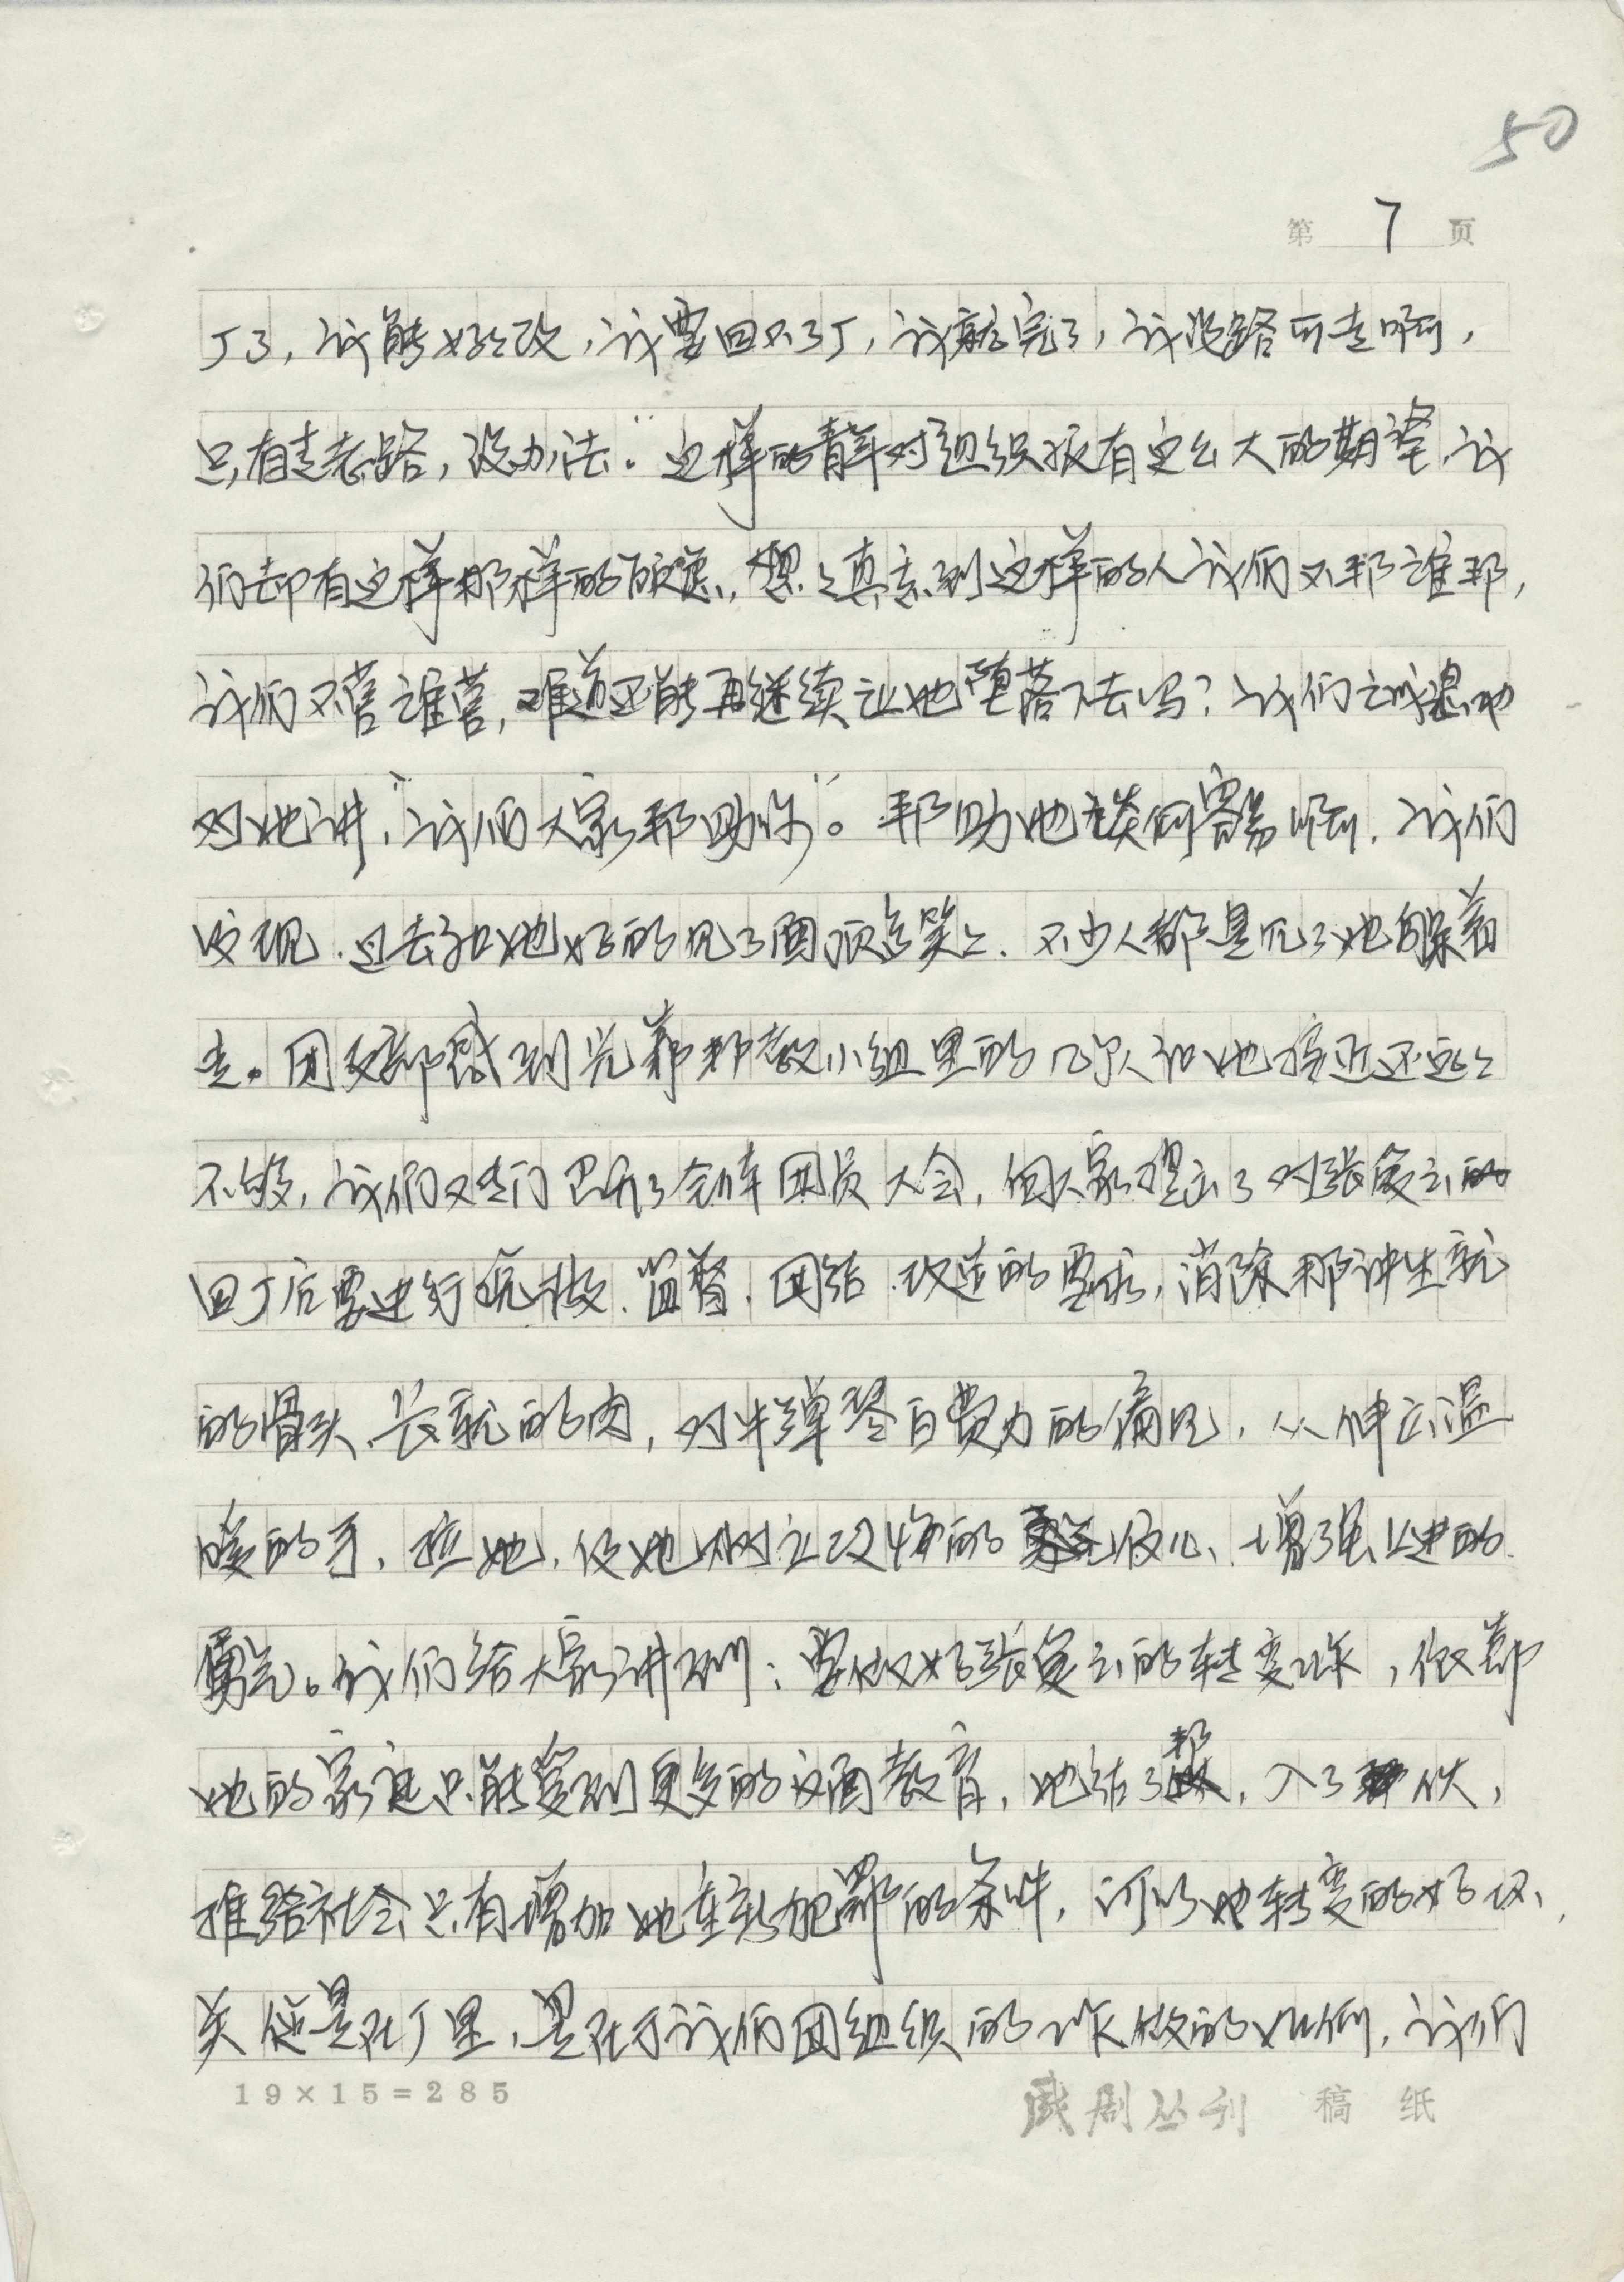 50
第 7 页
厂了，我能好好改，我要回不了厂，我就完了，我没路可走啊，
只有走老路，没办法。”这样的青年对组织报有这么大的期望，我
们却有这样那样的顾虑，想想真亏，到这样的人我们不帮谁帮，
我们不管谁管，难道还能再继续让她堕落下去吗？我们诚恳地
对她讲，“我们大家帮助你”。帮助她谈何容易啊，我们
发现，过去和她好的见了面顶多笑笑，不少人都是见了她躲着
走。团支部感到光靠帮教小组里的几个人和她接近还远远
不够，我们又专门召开了全体团员大会，向大家提出了对张复云的
回厂后要进行挽救、监督、团结、改造的要求，消除那种生就
的骨头、长就的肉，对牛弹琴白费力的偏见，从伸出温
暖的手，拉她，使她树立改悔的信心、增强上进的
勇气。我们给大家讲到：要做好张复云的转变工作，依靠
她的家庭只能受到更多的反面教育，她结了帮，入了伙，
推给社会只有增加她重新犯罪的条件，可以她转变的好坏、
关键是在厂里，是在于我们团组织的工作做的如何，我们
19×15=285
戏剧丛刊 稿 纸